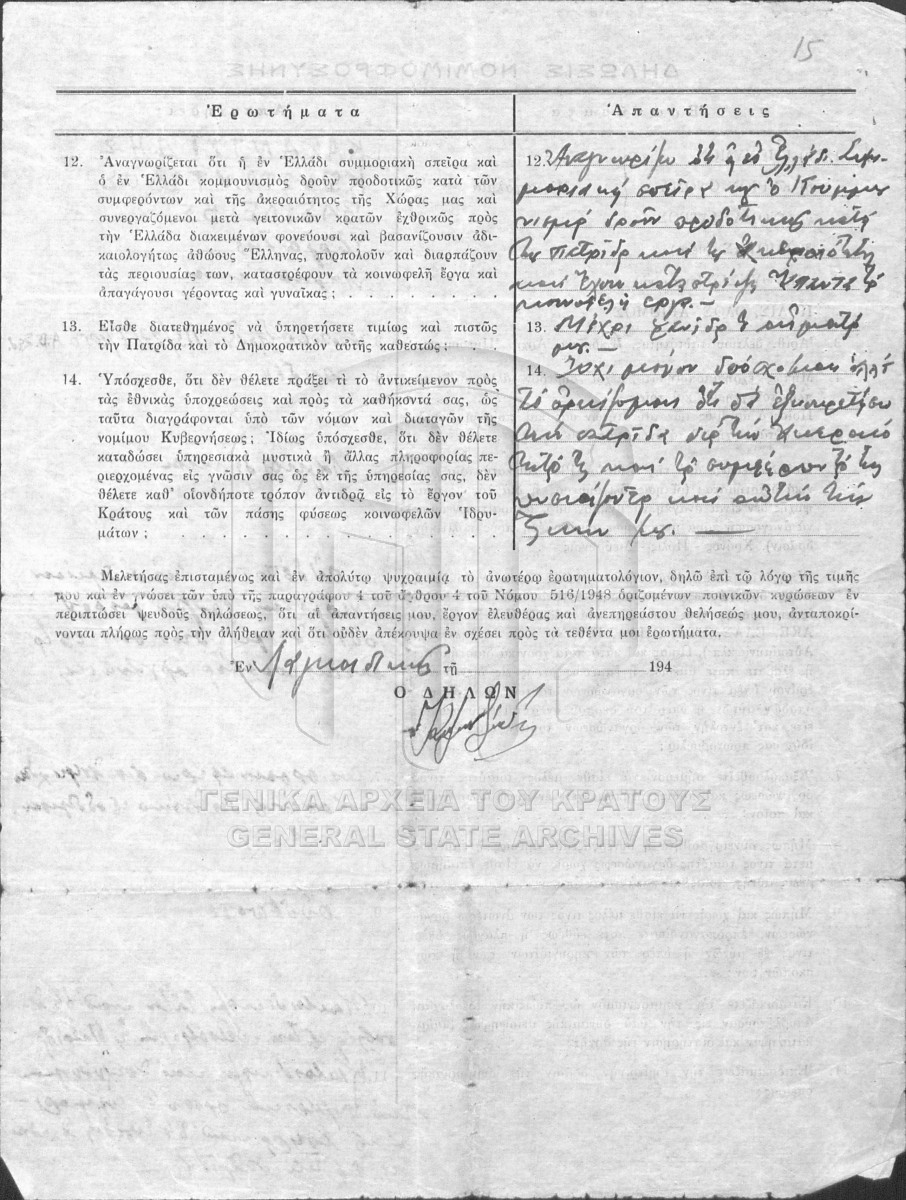 15
Ἐρωτήματα
Ἀπαντήσεις
12. Ἀναγνωρίζεται ὅτι ἡ ἐν Ἑλλάδι συμμοριακὴ σπεῖρα καὶ
ὁ ἐν Ἑλλάδι κομμουνισμὸς δροῦν προδοτικῶς κατὰ τῶν
συμφερόντων καὶ τῆς ἀκεραιότητος τῆς Χώρας μας καὶ
συνεργαζόμενοι μετὰ γειτονικῶν κρατῶν ἐχθρικῶς πρὸς
τὴν Ἑλλάδα διακειμένων φονεύουσι καὶ βασανίζουσιν ἀδι-
καιολογήτως ἀθώους Ἕλληνας, πυρπολοῦν καὶ διαρπάζουν
τὰς περιουσίας των, καταστρέφουν τὰ κοινωφελῆ ἔργα καὶ
ἀπαγάγουσι γέροντας καὶ γυναῖκας ; . . . . . . . .
12. Ἀναγνωρίζω ὅτι ἡ ἐν Ἑλλάδι Συμ-
μοριακή σπείρα και ὁ Κούμμου
νισμός δρούν προδοτικῶς κατά
της πατρίδος καί της ἀκεραιότητος
καί ἔχουν καταστρέψει ἅπαντα τά
κοινοφελῆ ἔργα.—
13. Εἶσθε διατεθημένος νὰ ὑπηρετήσετε τιμίως καὶ πιστῶς
τὴν Πατρίδα καὶ τὸ Δημοκρατικὸν αὐτῆς καθεστώς ; .
13. Μέχρι ρανίδος τοῦ αἵματός
μου.—
14. Ὑπόσχεσθε, ὅτι δὲν θέλετε πράξει τὶ τὸ ἀντικείμενον πρὸς
τὰς ἐθνικὰς ὑποχρεώσεις καὶ πρὸς τὰ καθήκοντά σας, ὡς
ταῦτα διαγράφονται ὑπὸ τῶν νόμων καὶ διαταγῶν τῆς
νομίμου Κυβερνήσεως ; Ἰδίως ὑπόσχεσθε, ὅτι δὲν θέλετε
καταδώσει ὑπηρεσιακὰ μυστικὰ ἢ ἄλλας πληροφορίας πε-
ριερχομένας εἰς γνῶσιν σας ὡς ἐκ τῆς ὑπηρεσίας σας, δὲν
θέλετε καθ' οἱονδήποτε τρόπον ἀντιδρᾷ εἰς τὸ ἔργον τοῦ
Κράτους καὶ τῶν πάσης φύσεως κοινωφελῶν Ἱδρυ-
μάτων ; . . . . . . . . . . . . . . .
14. Ὄχι μόνον ὑπόσχομαι ἀλλά
τό ὁρκίζομαι ὅτι θά ἐξυπηρετήσω
τήν πατρίδα διά τήν ἀκεραιό
τητά της καί τά συμφέροντά της
θυσιάζοντας καί αὐτήν τήν
ζωήν μου. —
Μελετήσας ἐπισταμένως καὶ ἐν ἀπολύτῳ ψυχραιμίᾳ τὸ ἀνωτέρω ἐρωτηματολόγιον, δηλῶ ἐπὶ τῷ λόγῳ τῆς τιμῆς
μου καὶ ἐν γνώσει τῶν ὑπὸ τῆς παραγράφου 4 τοῦ ἄρθρου 4 τοῦ Νόμου 516/1948 ὁριζομένων ποινικῶν κυρώσεων ἐν
περιπτώσει ψευδοῦς δηλώσεως, ὅτι αἱ ἀπαντήσεις μου, ἔργον ἐλευθέρας καὶ ἀνεπηρεάστου θελήσεώς μου, ἀνταποκρί-
νονται πλήρως πρὸς τὴν ἀλήθειαν καὶ ὅτι οὐδὲν ἀπέκρυψα ἐν σχέσει πρὸς τὰ τεθέντα μοι ἐρωτήματα.
Ἐν τῇ 194
Ο ΔΗΛΩΝ
ΓΕΝΙΚΑ ΑΡΧΕΙΑ ΤΟΥ ΚΡΑΤΟΥΣ
GENERAL STATE ARCHIVES